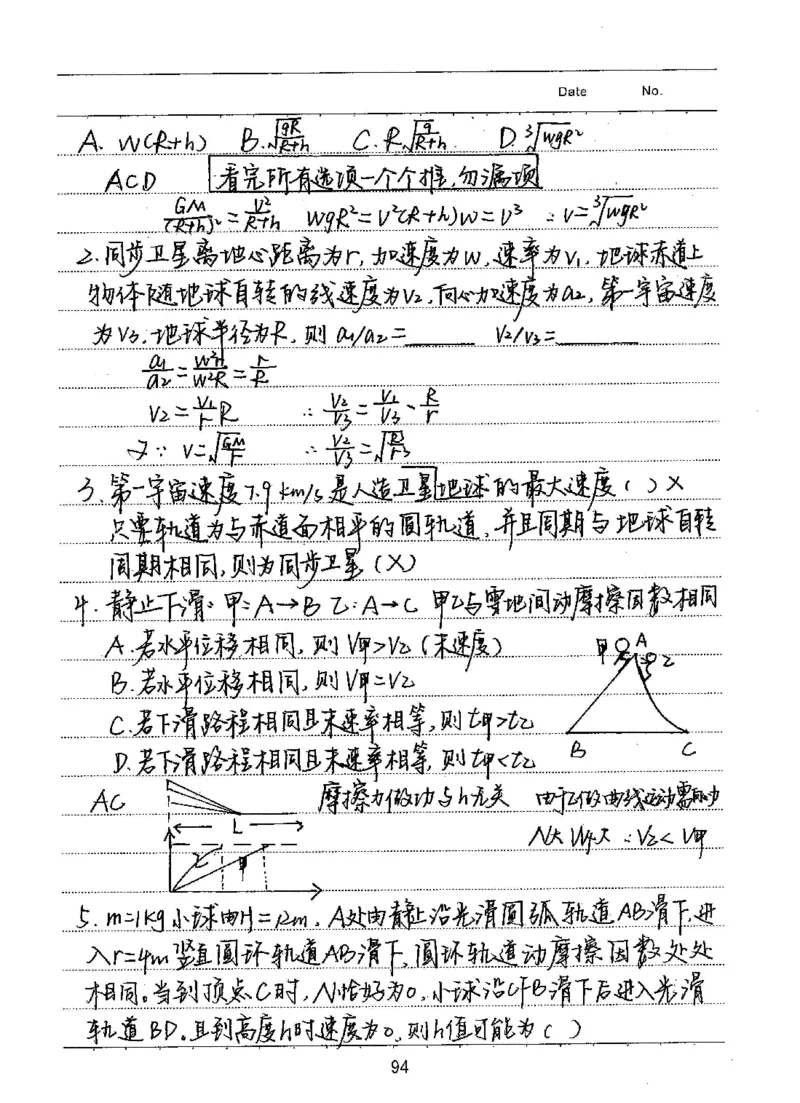 Date No.
A. W(R+h) B. √(gR/(R+h)) C. R√(g/(R+h)) D. ∛(wgR²)
ACD 看完所有选项一个个推,勿漏项
GM/(R+h)² = V²/(R+h) wgR²=V²(R+h)w=V³ ∴V=∛(wgR²)
2.同步卫星离地心距离为r,加速度为w,速率为V₁.地球赤道上
物体随地球自转的线速度为V₂,向心加速度为a₂,第一宇宙速度
为V₃,地球半径为R,则 a₁/a₂=______ V₂/V₃=______
a₁/a₂ = w²r/w²R = r/R
V₂=V₁/r R ∴V₂/V₃=V₁/V₃·R/r
又∵ V=√(GM/r) ∴V₂/V₃=√(R³/r³)
3、第一宇宙速度7.9km/s是人造卫星地球的最大速度( )×
只要轨道为与赤道面相平的圆轨道,并且周期与地球自转
周期相同,则为同步卫星(×)
4.静止下滑:甲:A→B 乙:A→C 甲乙与雪地间动摩擦因数相同
A.若水平位移相同,则V甲>V乙(末速度)
B.若水平位移相同,则V甲=V乙
C.若下滑路程相同且末速率相等,则t甲>t乙
D.若下滑路程相同且末速率相等,则t甲<t乙
甲 A 乙
B C
AC 摩擦力做功与h无关 由于乙做曲线运动需向力
L
N大 Wf大 ∴V乙<V甲
乙 甲
5.m=1kg小球由H=12m,A处由静止沿光滑圆弧轨道AB滑下,进
入r=4m竖直圆环轨道AB滑下,圆环轨道动摩擦因数处处
相同。当到顶点C时,N恰好为0,小球沿CFB滑下后进入光滑
轨道BD。且到高度h时速度为0,则h值可能为( )
94